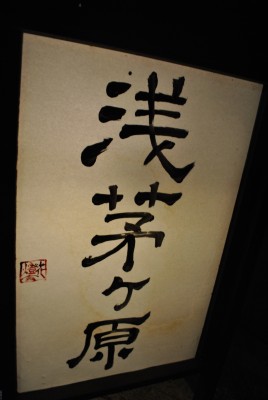 浅茅ヶ原